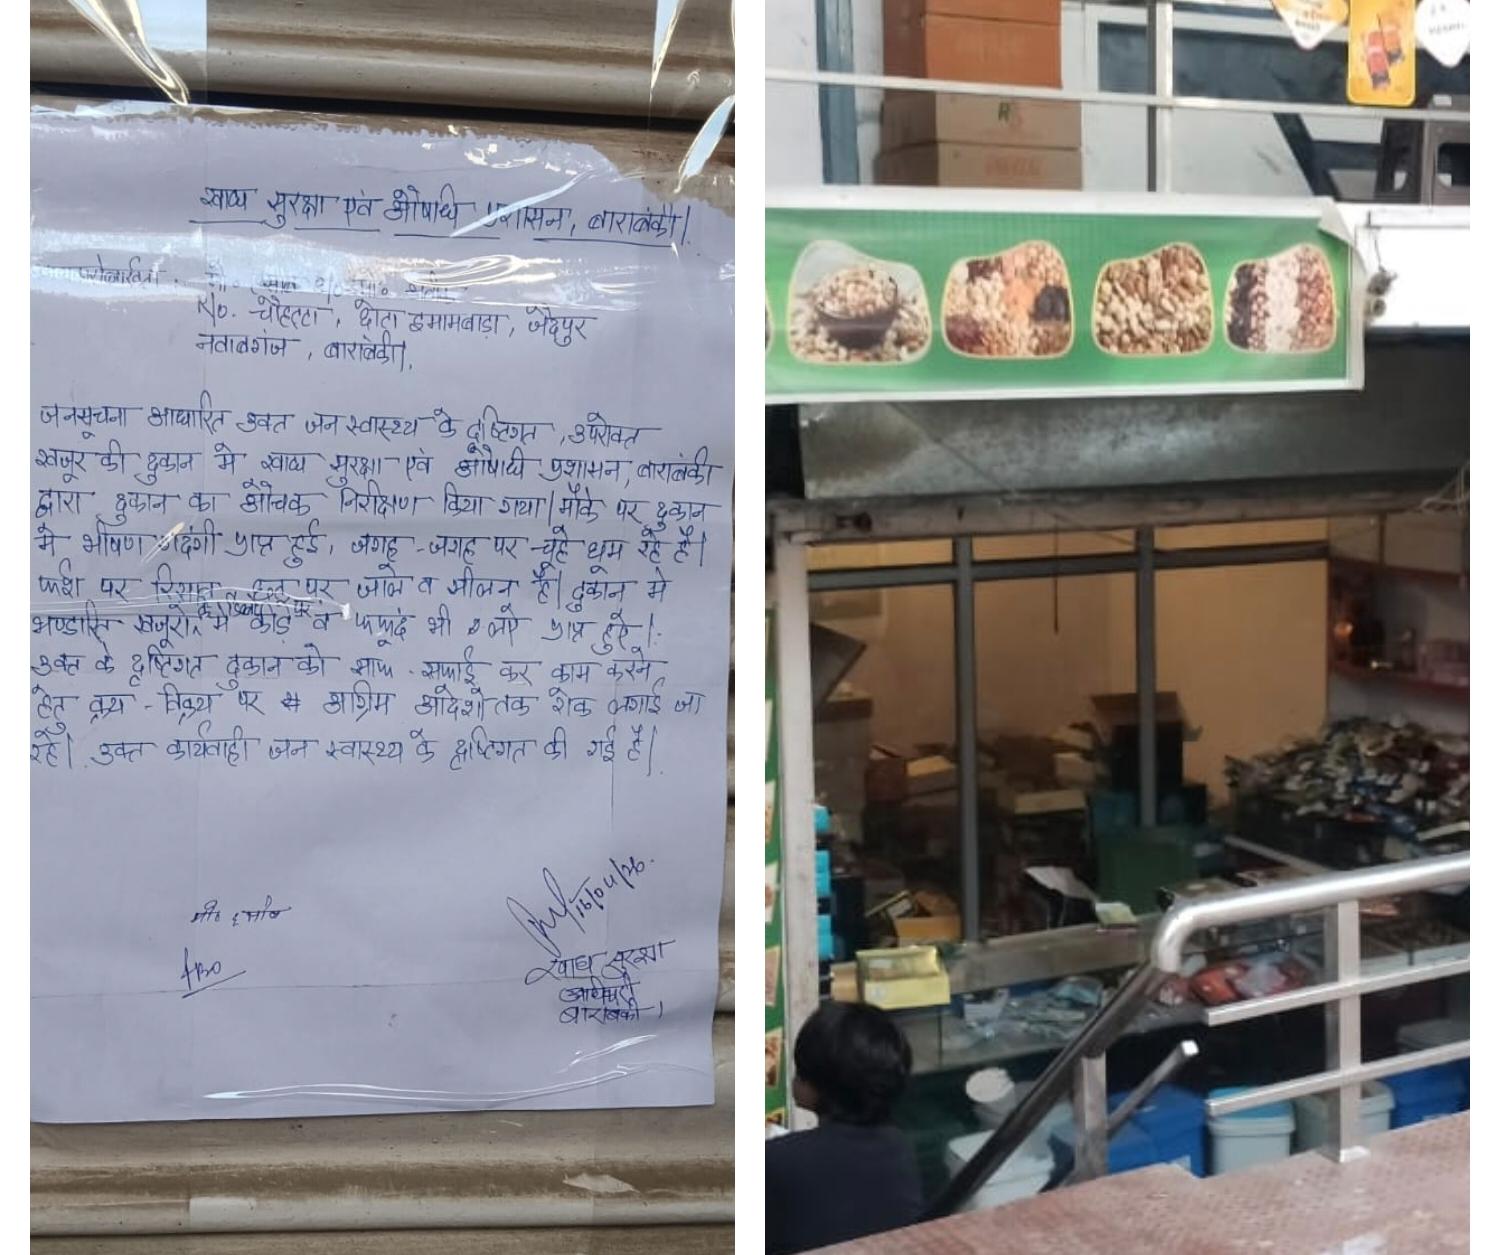 खाद्य सुरक्षा एवं औषधि प्रशासन, बाराबंकी।
R/o. चौहट्टा, छोटा इमामबाड़ा, जैदपुर
नवाबगंज, बाराबंकी।
जनसूचना आधारित उक्त जन स्वास्थ्य के दृष्टिगत, उपरोक्त
खजूर की दुकान मे खाद्य सुरक्षा एवं औषधि प्रशासन, बाराबंकी
द्वारा दुकान का औचक निरीक्षण किया गया। मौके पर दुकान
मे भीषण गंदगी प्राप्त हुई, जगह-जगह पर चूहे घूम रहे है।
फर्श पर पर जाले व सीलन है। दुकान मे
भण्डारित खजूरो मे कीड़े व फफूंद भी प्राप्त हुऐ।
उक्त के दृष्टिगत दुकान को साफ-सफाई कर काम करने
हेतु क्रय-विक्रय पर अग्रिम आदेशो तक रोक लगाई जा
रहे। उक्त कार्यवाही जन स्वास्थ्य के दृष्टिगत की गई है।
खाद्य सुरक्षा
अधिकारी
बाराबंकी।